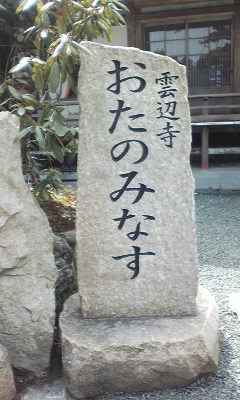 雲辺寺
おたのみなす